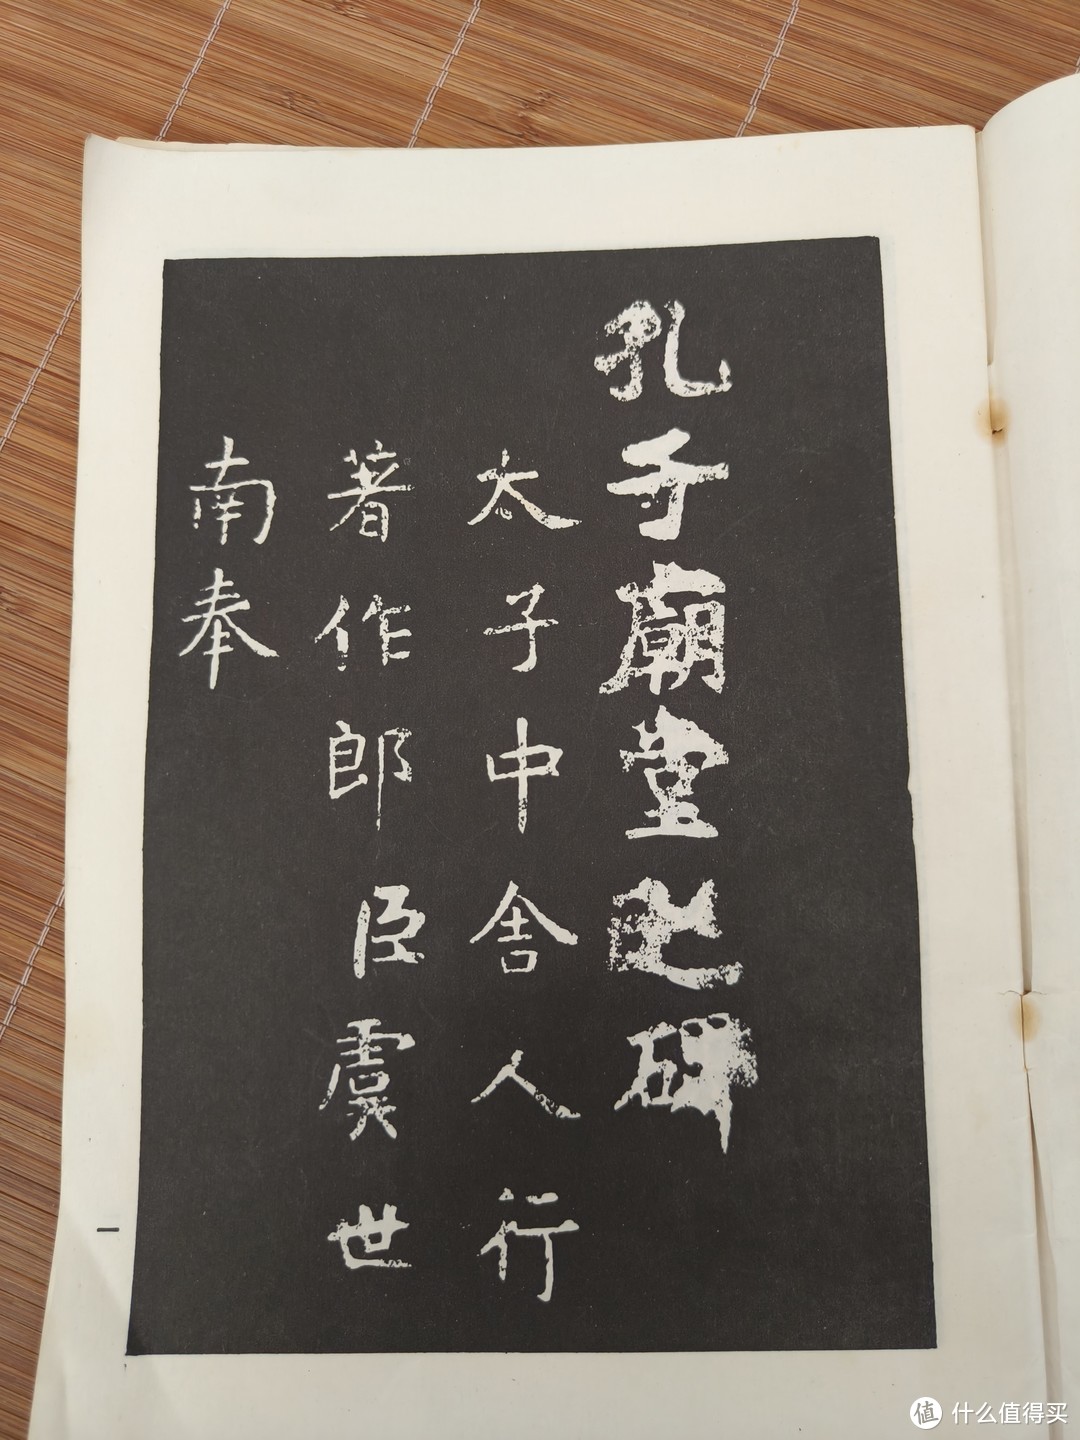 孔子廟堂之碑
太子中舍人行
著作郎臣虞世
南奉
一
值 什么值得买